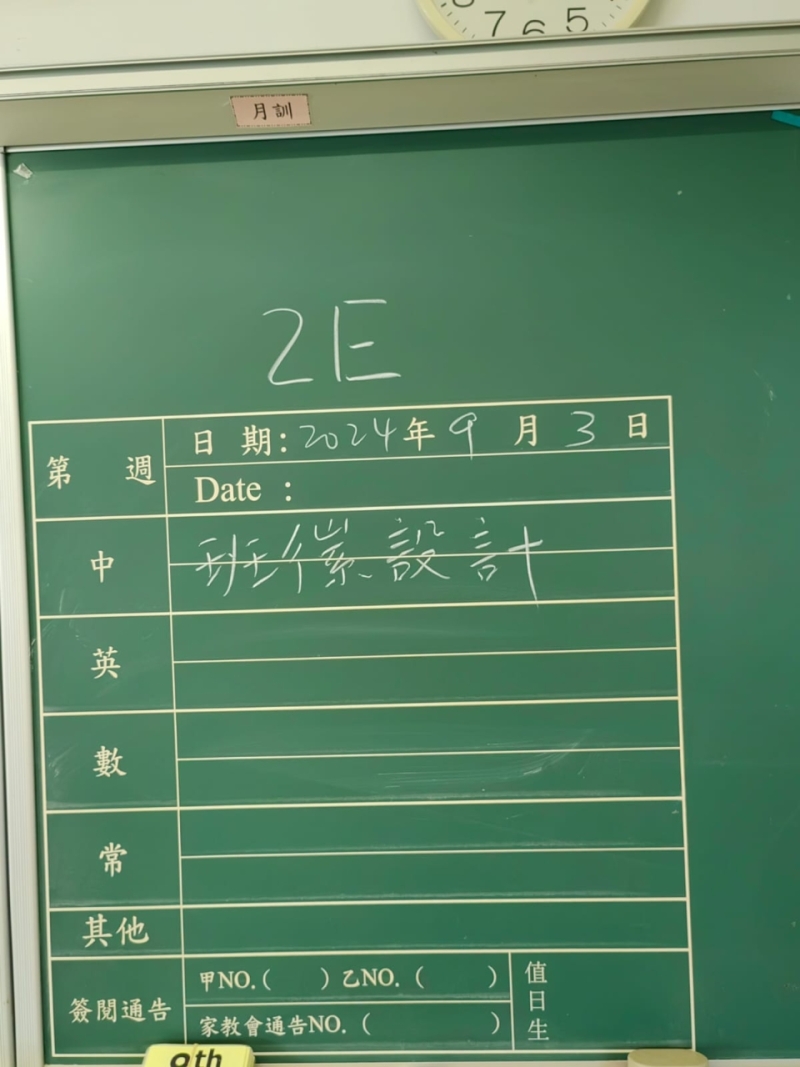 7 6 5
月訓
2E
第 週
日 期：2024年9月3日
Date ：
中
設計
英
數
常
其他
簽閱通告
甲NO.( ) 乙NO. ( )
家教會通告NO. ( )
值日生
9th